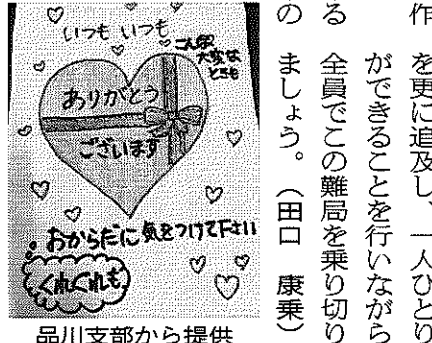 作
を更に追及し、一人ひとり
ができることを行いながら
る　全員でこの難局を乗り切り
の　ましょう。（田口　康乗）
いつも いつも
こんな
大変な
ときも
ありがとう
ございます
おからだに気をつけて下さい
くれぐれも
品川支部から提供